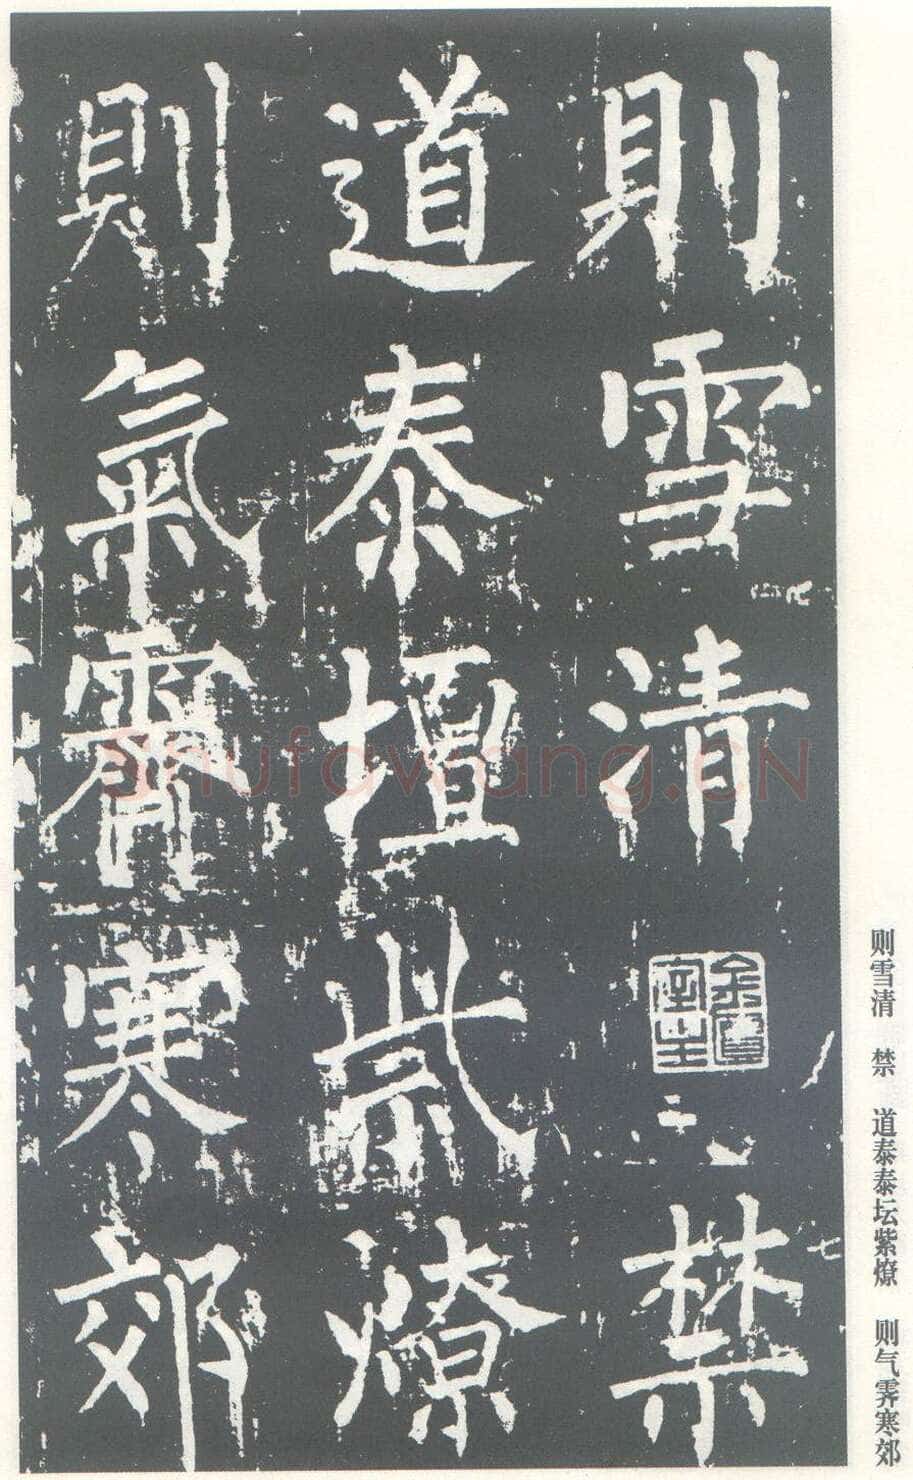 則雪清
禁
道泰壇祡燎
則氣霽寒郊
则雪清　禁　道泰泰坛紫燎　则气霁寒郊
Shufawang.CN